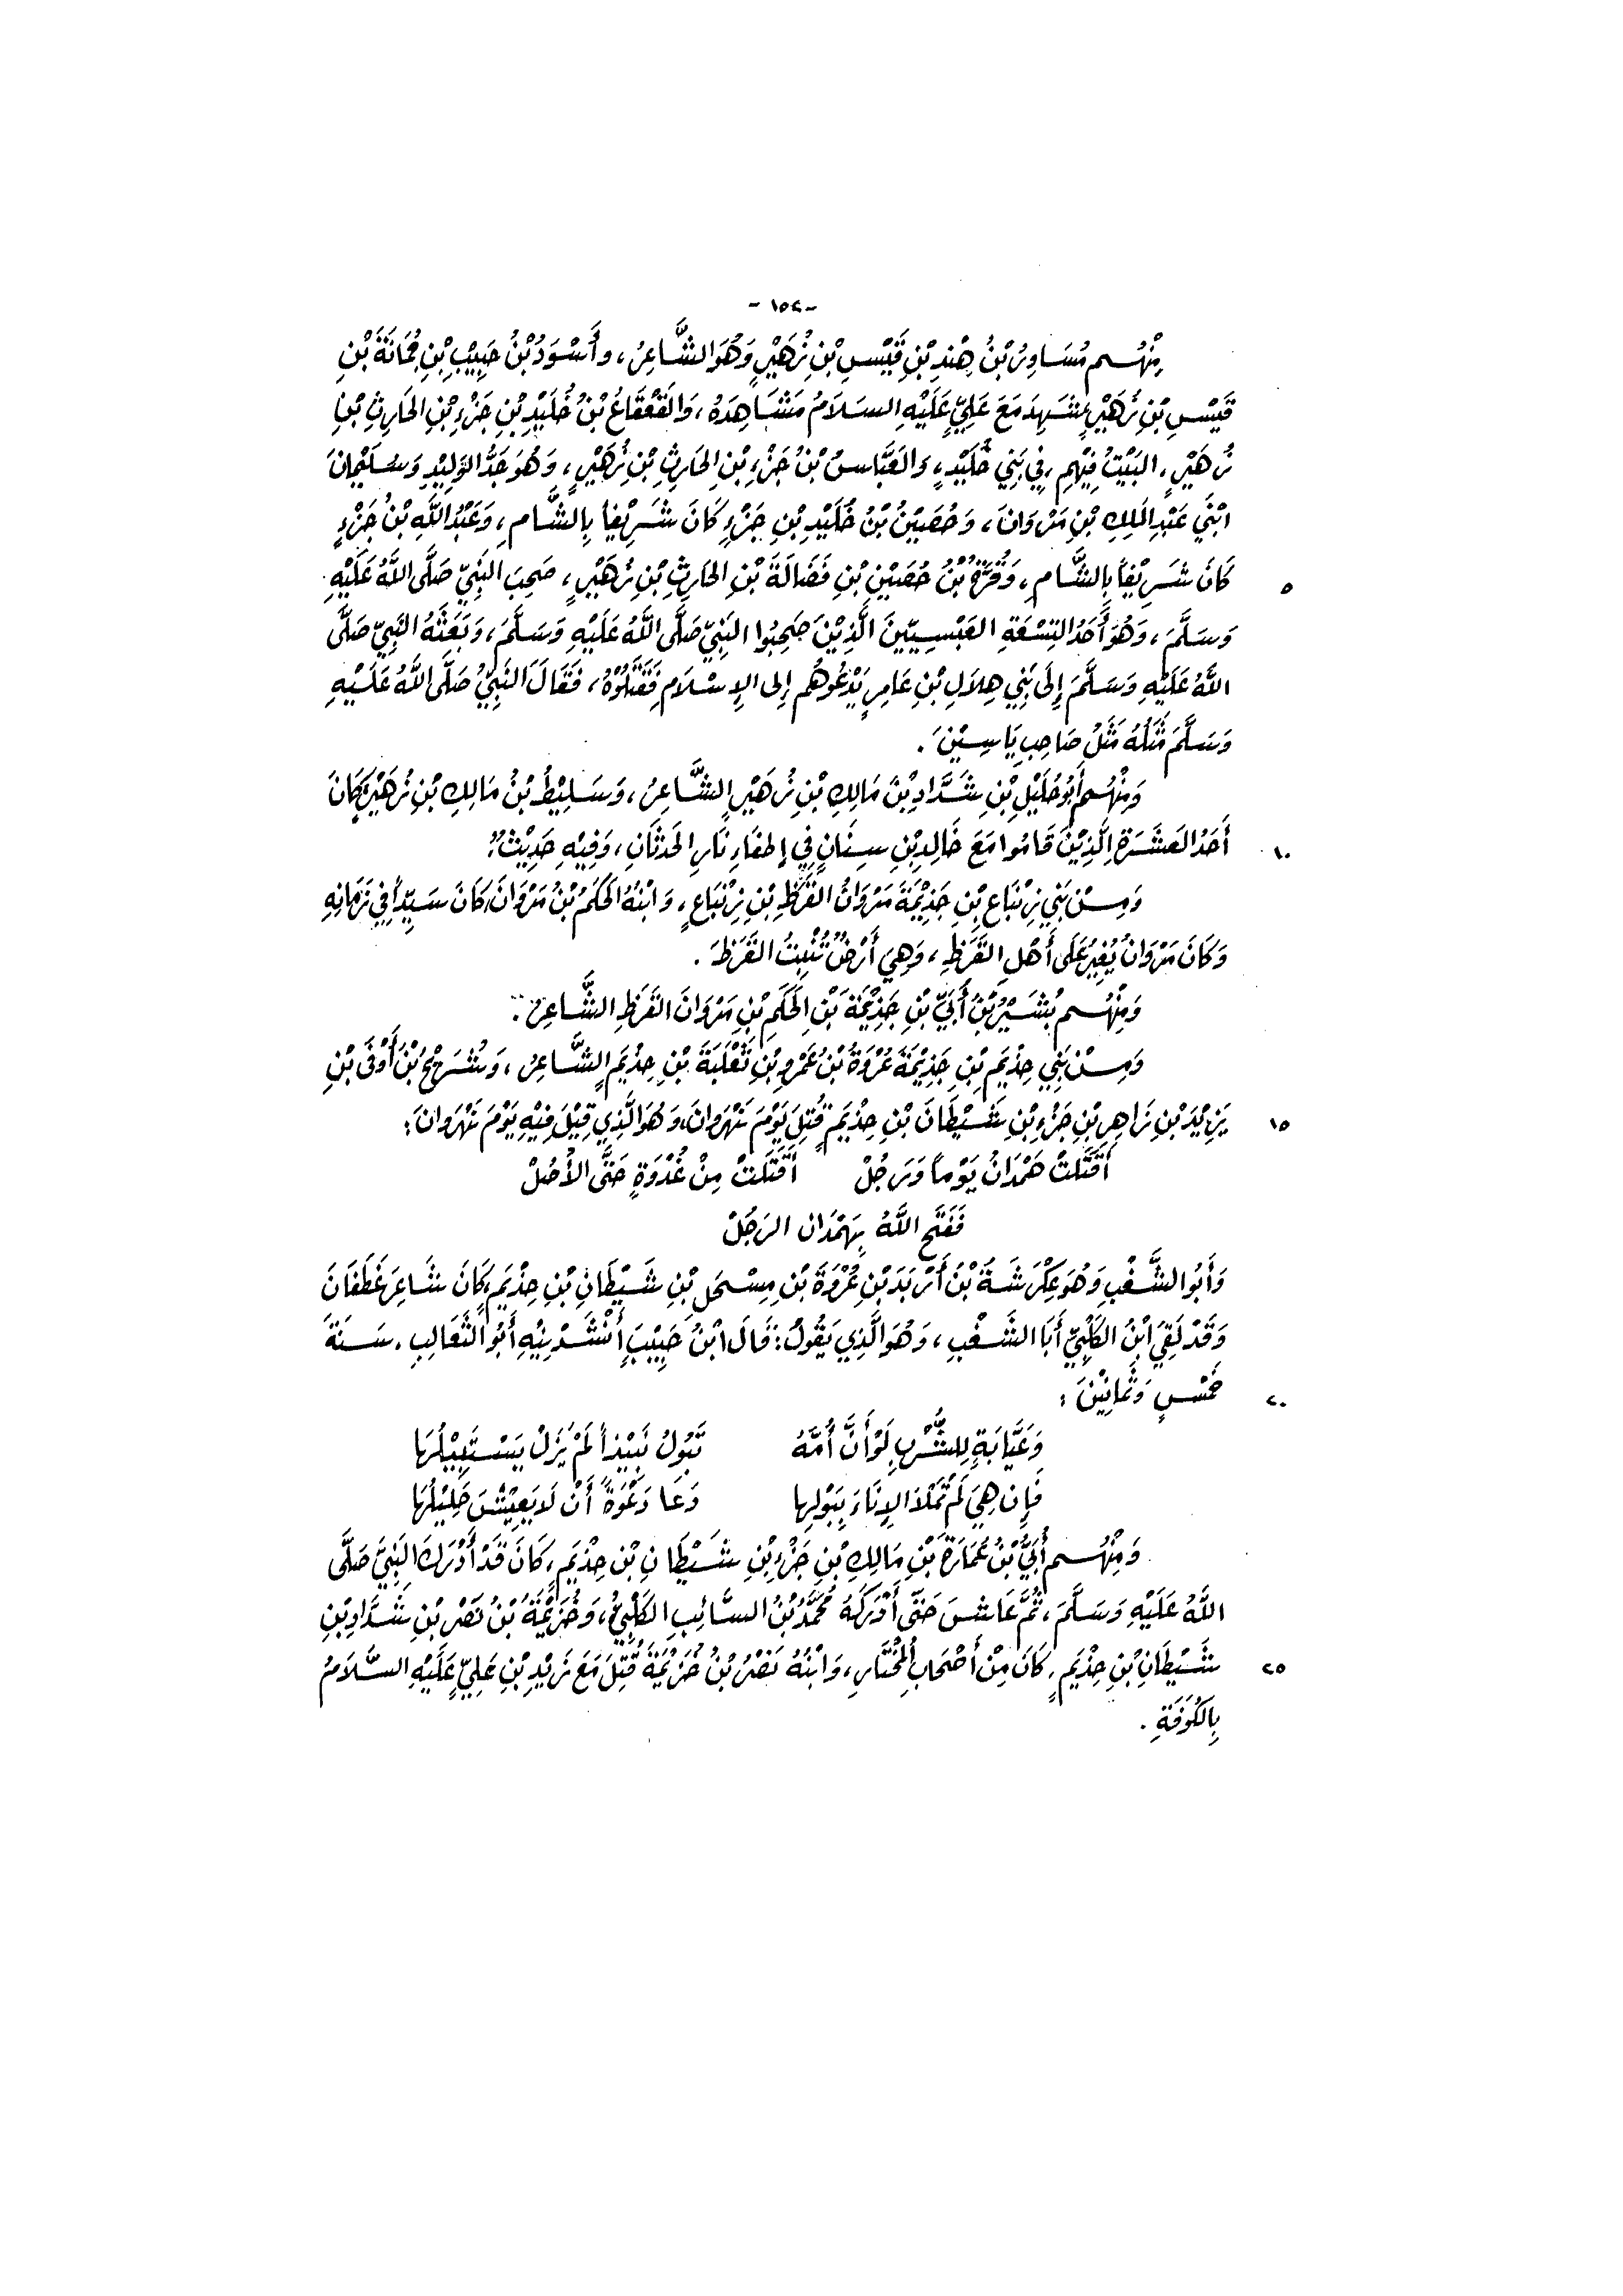 - ١٥٤ -
مِنْهُم مُسَاوِرُ بْنُ هِنْدِ بْنِ قَيْسِ بْنِ زُهَيْرٍ وَهُوَ الشَّاعِرُ، وأَسْوَدُ بْنُ حَبِيْبِ بْنِ جُمَانَةَ بْنِ
قَيْسِ بْنِ زُهَيْرٍ شَهِدَ مَعَ عَلِيٍّ عَلَيْهِ السَلَامُ مَشَاهِدَهُ، وَالقَعْقَاعُ بْنُ خُلَيْدِ بْنِ جَزْءِ بْنِ الحَارِثِ بْنِ
زُهَيْرٍ، البَيْتُ فِيْهِمِ، فِي بَنِي خُلَيْدٍ، وَالعَبَّاسُ بْنُ جَزْءِ بْنِ الحَارِثِ بْنِ زُهَيْرٍ، وَهُوَ جَدُّ الوَلِيْدِ وَسُلَيْمَانَ
ابْنَي عَبْدِ المَلِكِ بْنِ مَرْوَانَ، وَحُصَيْنُ بْنُ خُلَيْدِ بْنِ جَزْءٍ كَانَ شَرِيْفاً بِالشَّامِ، وَعَبْدُ اللَّهِ بْنُ جَزْءٍ
٥ كَانَ شَرِيْفاً بِالشَّامِ، وَقُرَّةُ بْنُ حُصَيْنِ بْنِ فَضَالَةَ بْنِ الحَارِثِ بْنِ زُهَيْرٍ، صَحِبَ النَبِيَّ صَلَّى اللَّهُ عَلَيْهِ
وَسَلَّمَ، وَهُوَ أَحَدُ التِسْعَةِ العَبْسِيِّيْنَ الَّذِيْنَ صَحِبُوا النَبِيَّ صَلَّى اللَّهُ عَلَيْهِ وَسَلَّمَ، وَبَعَثَهُ النَبِيُّ صَلَّى
اللَّهُ عَلَيْهِ وَسَلَّمَ إِلَى بَنِي هِلَالِ بْنِ عَامِرٍ يَدْعُوهُم إِلى الإِسْلَامِ فَقَتَلُوْهُ، فَقَالَ النَبِيُّ صَلَّى اللَّهُ عَلَيْهِ
وَسَلَّمَ مَثَلُهُ مَثَلُ صَاحِبِ يَاسِيْنَ.
وَمِنْهُم أَبُو حُلَيْلِ بْنِ شَدَّادِ بْنِ مَالِكِ بْنِ زُهَيْرٍ الشَّاعِرُ، وَسَلِيْطُ بْنُ مَالِكِ بْنِ زُهَيْرٍ كَانَ
١٠ أَحَدُ العَشَرَةِ الَّذِيْنَ قَامُوا مَعَ خَالِدِ بْنِ سِنَانٍ فِي إِطفَاءِ نَارِ الحَدَثَانِ، وَفِيْهِ حَدِيْثٌ.
وَمِنْ بَنِي زِنْبَاعِ بْنِ جَذِيْمَةَ مَرْوَانُ القَرَظِ بْنِ زِنْبَاعٍ، وَابْنُهُ الحَكَمُ بْنُ مَرْوَانَ، كَانَ سَيِّداً فِي زَمَانِهِ
وَكَانَ مَرْوَانُ يُغِيْرُ عَلَى أَهْلِ القَرَظِ، وَهِيَ أَرْضٌ تُنْبِتُ القَرَظَ.
وَمِنْهُم بُشَيْرُ بْنُ أُبَيِّ بْنِ جَذِيْمَةَ بْنِ الحَكَمِ بْنِ مَرْوَانَ القَرَظِ الشَّاعِرُ.
وَمِنْ بَنِي حِذْيَمِ بْنِ جَذِيْمَةَ عُرْوَةُ بْنُ عَمْرِو بْنِ ثَعْلَبَةَ بْنِ حِذْيَمٍ الشَّاعِرُ، وَشُرَيْحُ بْنُ أَوْفَى بْنِ
١٥ يَزِيْدَ بْنِ زَاهِرِ بْنِ جَزْءِ بْنِ شَيْطَانَ بْنِ حِذْيَمٍ قُتِلَ يَوْمَ نَهْرَوانَ، وَهُوَ الَّذِي قِيْلَ فِيْهِ يَوْمَ نَهْرَوانَ:
أَقْتَتَلَتْ هَمْدَانُ يَوْماً وَرَجُلْ أقْتَتَلَتْ مِنْ غُدْوَةٍ حَتَّى الأُصُلْ
فَفَتَحَ اللَّهُ بِهَمْدَان الرَجُلْ
وَأَبُو الشَّغْبِ وَهُوَ عِكْرَشَةُ بْنُ أَرْبَدَ بْنِ عُرْوَةَ بْنِ مِسْحَلِ بْنِ شَيْطَانِ بْنِ حِذْيَمٍ، كَانَ شَاعِرَ غَطَفَانَ
وَقَدْ لَقِيَ ابْنُ الكَلْبِيِّ أَبَا الشَغْبِ، وَهُوَ الَّذِي يَقُولُ: قَالَ ابْنُ حَبِيْبَ أَنْشَدْنِيْهِ أَبُو الثَّعَالِبِ. سَنَةَ
٢٠ خَمْسٍ وَثَمانِيْنَ:
وَعَيَّابَةٍ لِلشُّرْبِ لَوْ أَنَّ أُمَّهُ تَبُولُ نَبِيْذاً لَمْ يَزَلْ يَسْتَبِيْلُهَا
فَإِن هِيَ لَمْ تَمْلَا الإِنَاءَ بِبَوْلِها دَعَا دَعْوَةً أَنْ لَا يَعِيْشَ حَلِيْلُهَا
وَمِنْهُم أُبَيُّ بْنُ عُمَارَةَ بْنِ مَالِكِ بْنِ جَزْءِ بْنِ شَيْطَانِ بْنِ حِذْيَمٍ، كَانَ قَدْ أَدْرَكَ النَبِيَّ صَلَّى
اللَّهُ عَلَيْهِ وَسَلَّمَ، ثُمَّ عَاشَ حَتَّى أَدْرَكَهُ مُحَمَّدُ بْنُ السَّائِبِ الكَلْبِيُّ، وَخُزَيْمَةُ بْنُ نَصْرِ بْنِ شَدَّادِ بْنِ
٢٥ شَيْطَانِ بْنِ حِذْيَمٍ، كَانَ مِنْ أَصْحَابِ المُخْتَارِ، وَابْنُهُ نَصْرُ بْنُ خُزَيْمَةَ قُتِلَ مَعَ زَيْدِ بْنِ عَلِيٍّ عَلَيْهِ السَّلَامُ
بِالكُوفَةِ.